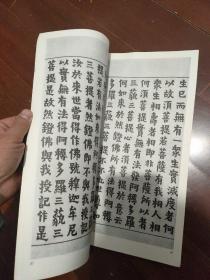 生已而無有一眾生實滅度者何
以故須菩提若菩薩有我相人相
眾生相壽者相即非菩薩所以者
何須菩提實無有法發阿耨多羅
三藐三菩提心者須菩提於意云
何如來於然燈佛所有法得阿耨
提若有法如來得阿耨多羅三藐
三菩提者然燈佛即不與我授記
汝於來世當得作佛號釋迦牟尼
以實無有法得阿耨多羅三藐三
菩提是故然燈佛與我授記作是